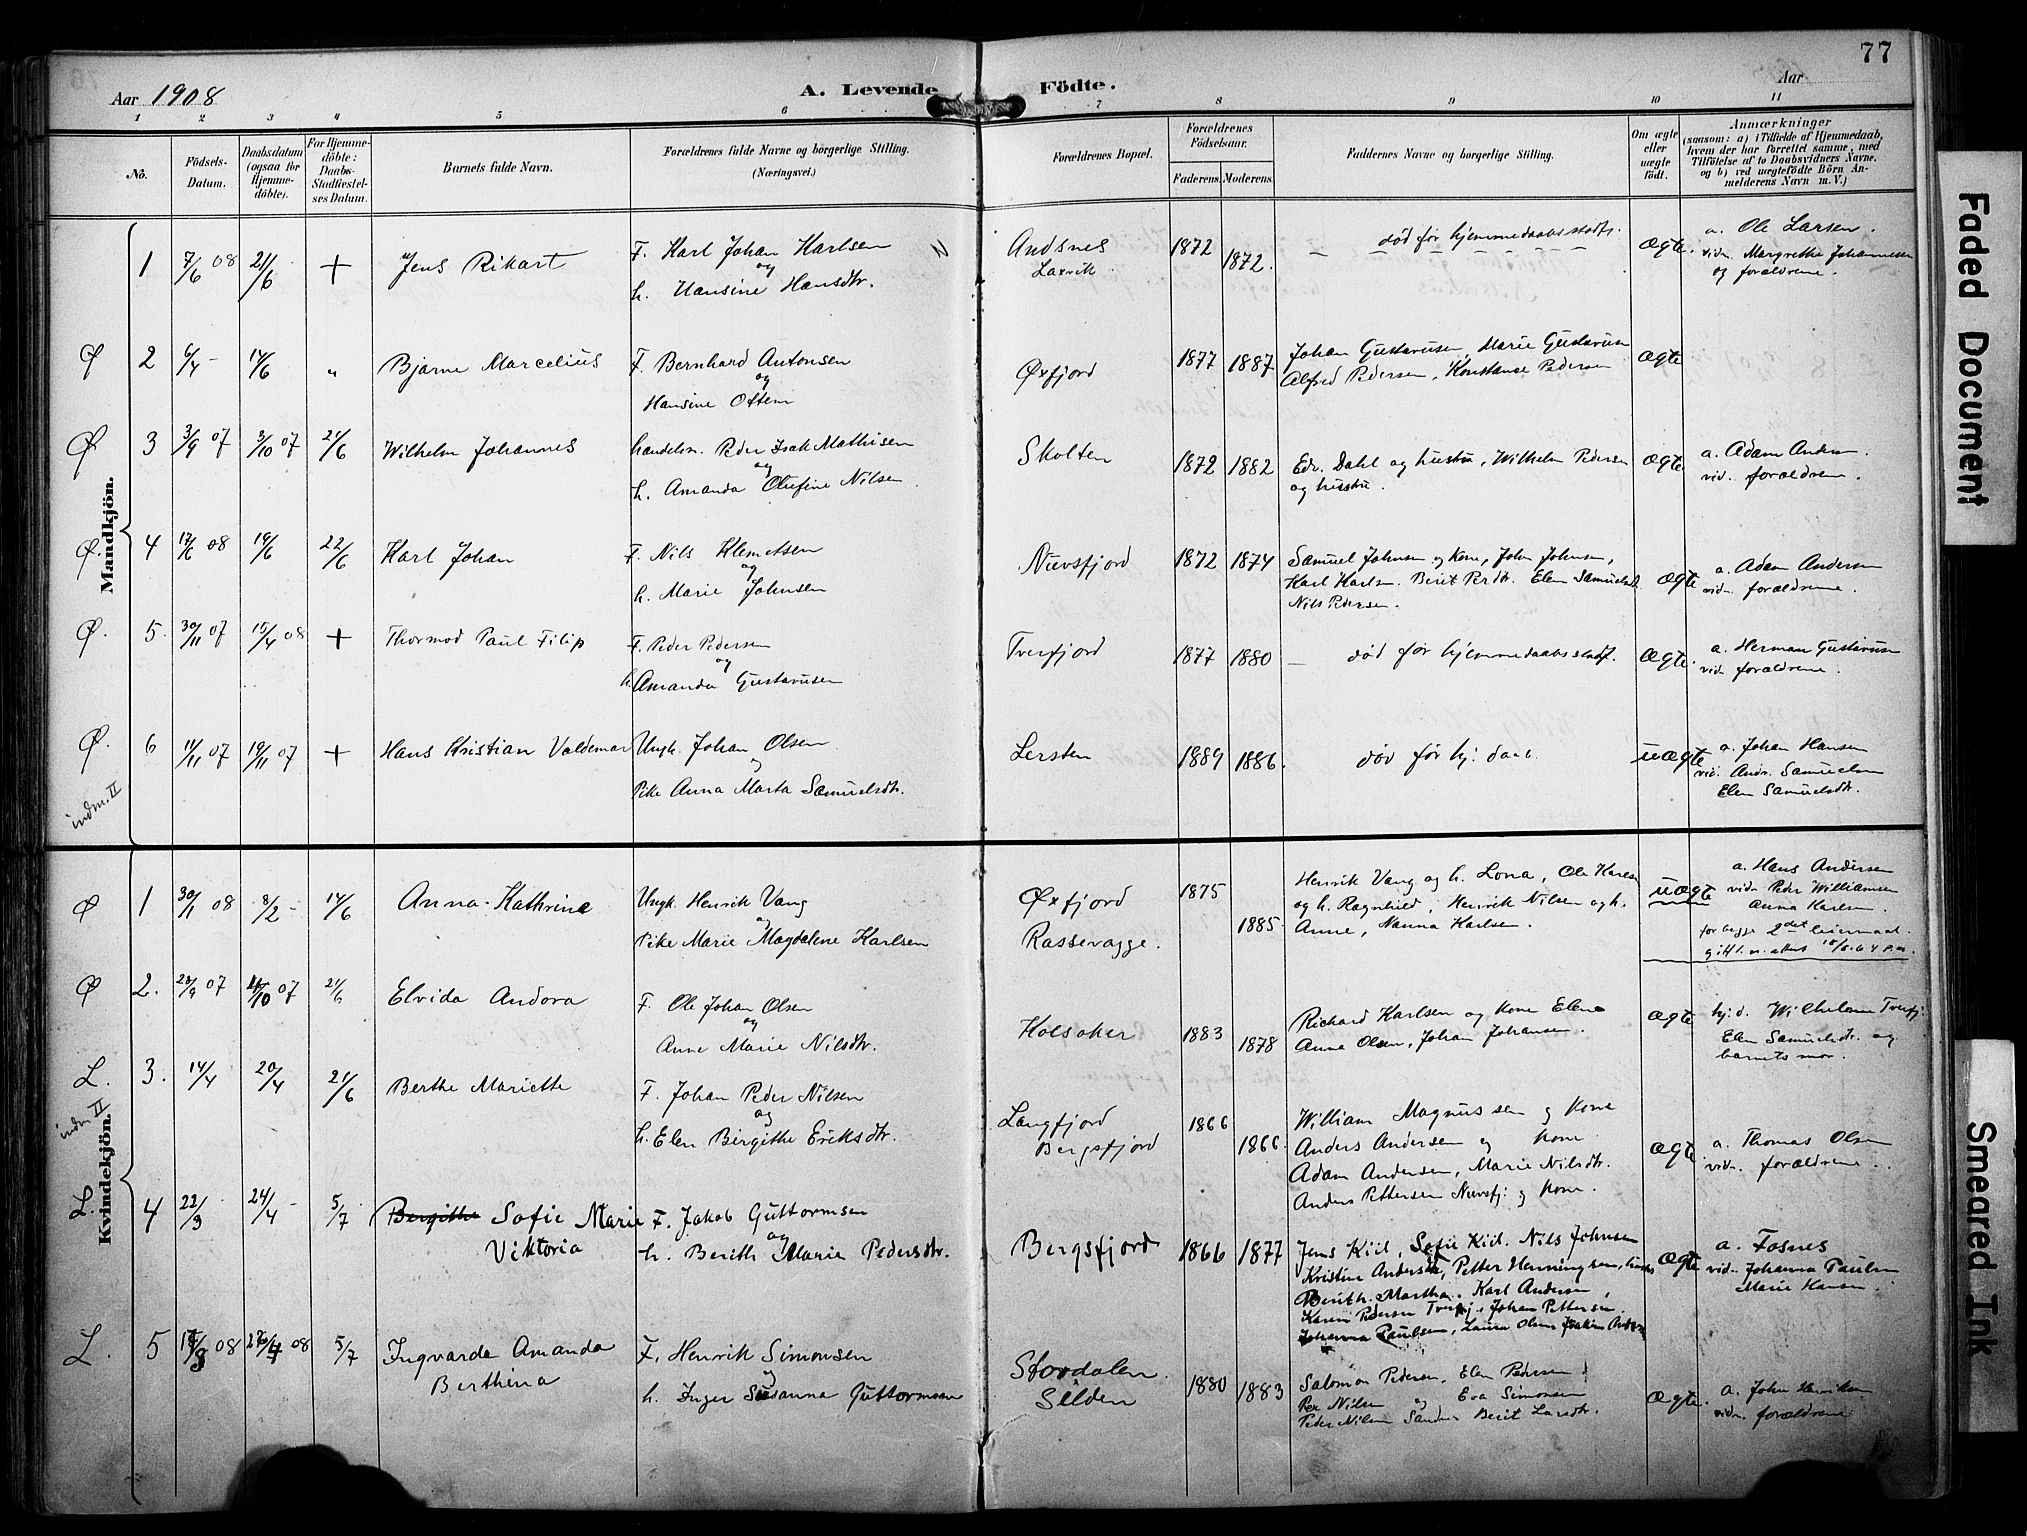 77
Aar 1908
A. Levende Födte.
Aar
1 2 3 4 5 6 7 8 9 10 11
No. Födsels-Datum. Daabsdatum (ogsaa for Hjemmedöbte). For Hjemmedöbte: Daabs-Stadfæstelses Datum. Barnets fulde Navn. Forældrenes fulde Navne og borgerlige Stilling. (Næringsvei.) Forældrenes Bopæl. Forældrenes Födselsaar. Faderens. Moderens. Faddernes Navne og borgerlige Stilling. Om ægte eller uægte födt. Anmærkninger (saasom: a) i Tilfælde af Hjemmedaab, hvem der har forrettet samme, med Tilföielse af to Daabsvidners Navne. og b) ved uægtefödte Börn Anmelderens Navn m. V.)
Mandkjön.
1 7/6 08 21/6 + Jens Rikart F. Karl Johan Karlsen N Andsnes 1872 1872. død før hjemmedaabsstadf. ægte. a. Ole Larsen.
og Laxvik vidn. Margrethe Johannesen
h. Hansine Hansdtr. og forældrene.
Ø 2 6/4 - 14/6 " Bjarne Marcelius F. Bernhard Antonsen Øxfjord 1877 1887. Johan Gustavsen, Marie Gustavsen ægte
og Alfred Pedersen, Konstanse Pedersen
Hansine Ottem
Ø 3 3/9 07 3/10 07 21/6 Wilhelm Johannes handelsm. Peder Isak Mathisen Skolten 1872 1882 Edv. Dahl og hustru, Wilhelm Pedersen ægte a. Adam Anders.
og og hustru. vid. forældrene.
h. Amanda Olufine Nilsen.
Ø. 4 17/6 08 19/6 22/6 Karl Johan F. Nils Klemetsen Nuvsfjord 1872 1874 Samuel Johnsen og Kone, John Johnsen, ægte a. Adam Andersen
og Karl Karlsen. Berit Perdtr. Elen Samuelsdt. vidn. forældrene.
h. Marie Johnsen Nils Pedersen.
Ø. 5. 30/11 07 15/4 08 + Thormod Paul Filip F. Peder Pedersen Tverfjord 1877 1880 død før hjemmedaabsstadf. ægte. a. Herman Gustavsen
og vidn. forældrene.
h. Amanda Gustavsen
Ø. 6 11/11 07 19/11 07 + Hans Kristian Valdemar Ungk. Johan Olsen Lersten 1889 1886. død før hj. daab. uægte a. Johan Hansen
og vid. Andr. Samuelsen
indm. II Pike Anna Marta Samuelsdtr. Elen Samuelsdtr.
Kvindekjön.
Ø 1 30/1 08 8/2 - 14/6 Anna Kathrine Ungk. Henrik Vang Øxfjord 1875 1885. Henrik Vang og h. Lona, Ole Karlsen uægte a. Hans Andersen
og Rassevagge. og h. Ragnhild, Henrik Nilsen og h. vidn. Peder Williamsen
Pike Marie Magdalene Karlsen Anne, Nanna Karlsen. Anna Karlsen.
for begge 2det leiermaal.
Ø 2. 28/9 07 /10 07 21/6 Elvida Andora F. Ole Johan Olsen Kolsaker 1883 1878 Richard Karlsen og Kone Elene ægte hj. d. Wilhelm Tverfj.
og Anna Olsen, Johan Johansen. Elen Samuelsdtr. og
Anne Marie Nilsdtr. barnets mor.
L. 3. 14/4 20/4 21/6 Berthe Mariethe F. Johan Peder Nilsen Langfjord 1866 1866. William Magnussen og Kone ægte a. Thomas Olsen
indm II og Bergsfjord Anders Andersen og Kone. vidn. forældrene.
h. Elen Birgithe Eriksdtr. Adam Andersen, Marie Nilsdtr.
Anders Pettersen Nuvsfj. og Kone.
L. 4 22/3 24/4 - 5/7 Bergithe Sofie Marie F. Jakob Guttormsen Bergsfjord 1866 1877 Jens Kiil, Sofie Kiil. Nils Johnsen ægte a. Fosnes
Viktoria og Kristine Andersdtr, Petter Henningsen, vidn. Johanna Paulsen
h. Berith Marie Pedersdtr. Berith. Martha. Karl Andersen, Marie Hansen.
Karen Pedersen Tverfj., Johan Pettersen.
Johanna Paulsen, Laura Olsen
L. 5 08 08 5/7 Ingvarda Amanda F. Henrik Simonsen Stordalen. 1880 1883 Salomon Pedersen, Elen Pedersen ægte. a. John Henriksen
Berthina og Silden Per Nilsen og Eva Simonsen vidn. forældrene
h. Inger Susanna Guttormsen Peder Nilsen Berit Larsdtr.
Faded Document
Smeared Ink